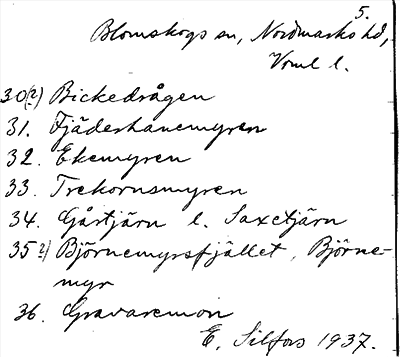 5.
Blomskogs sn, Nordmarks hd,
Vrml l.
30(2) Bickedrågen
31. Fjäderhanemyren
32. Ekemyren
33. Trekornsmyren
34. Gårtjärn l. Saxetjärn
35 2) Björnemyrsfjället, Björne-
myr
36. Gravaremon
E. Silfors 1937.